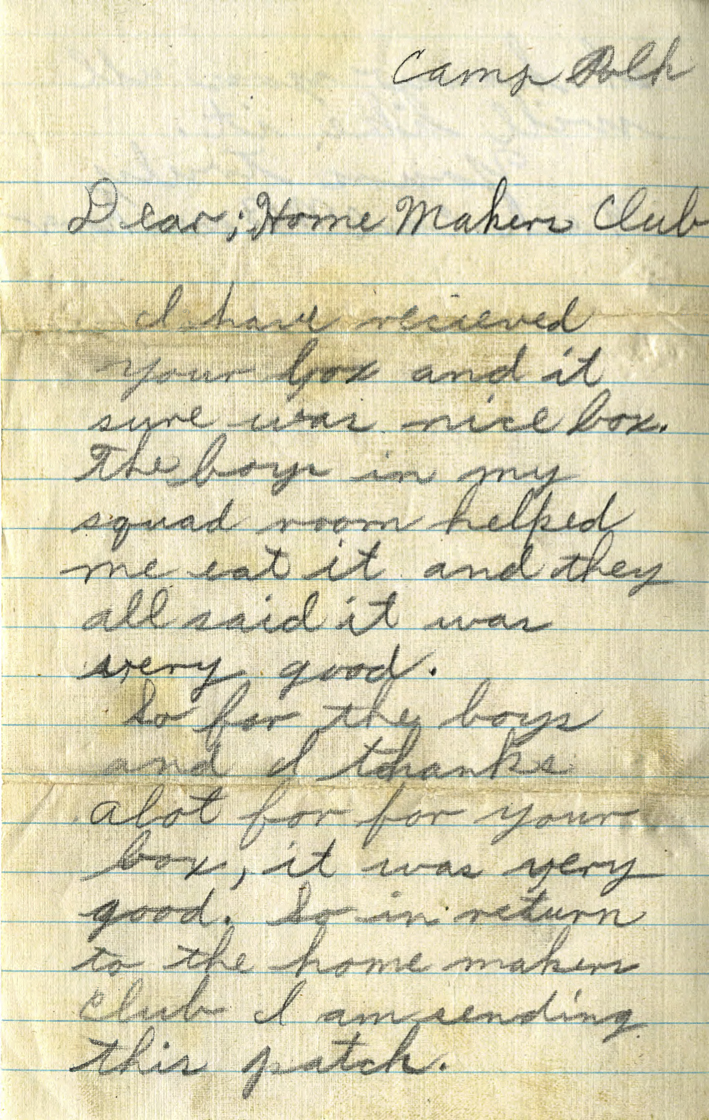 Camp Polk
Dear; Home Makers Club
I have recieved
your box and it
sure was nice box.
The boys in my
squad room helped
me eat it and they
all said it was
very good.
So for the boys
and I thanks
alot for for your
box, it was very
good. So in return
to the home makers
club I am sending
this patch.